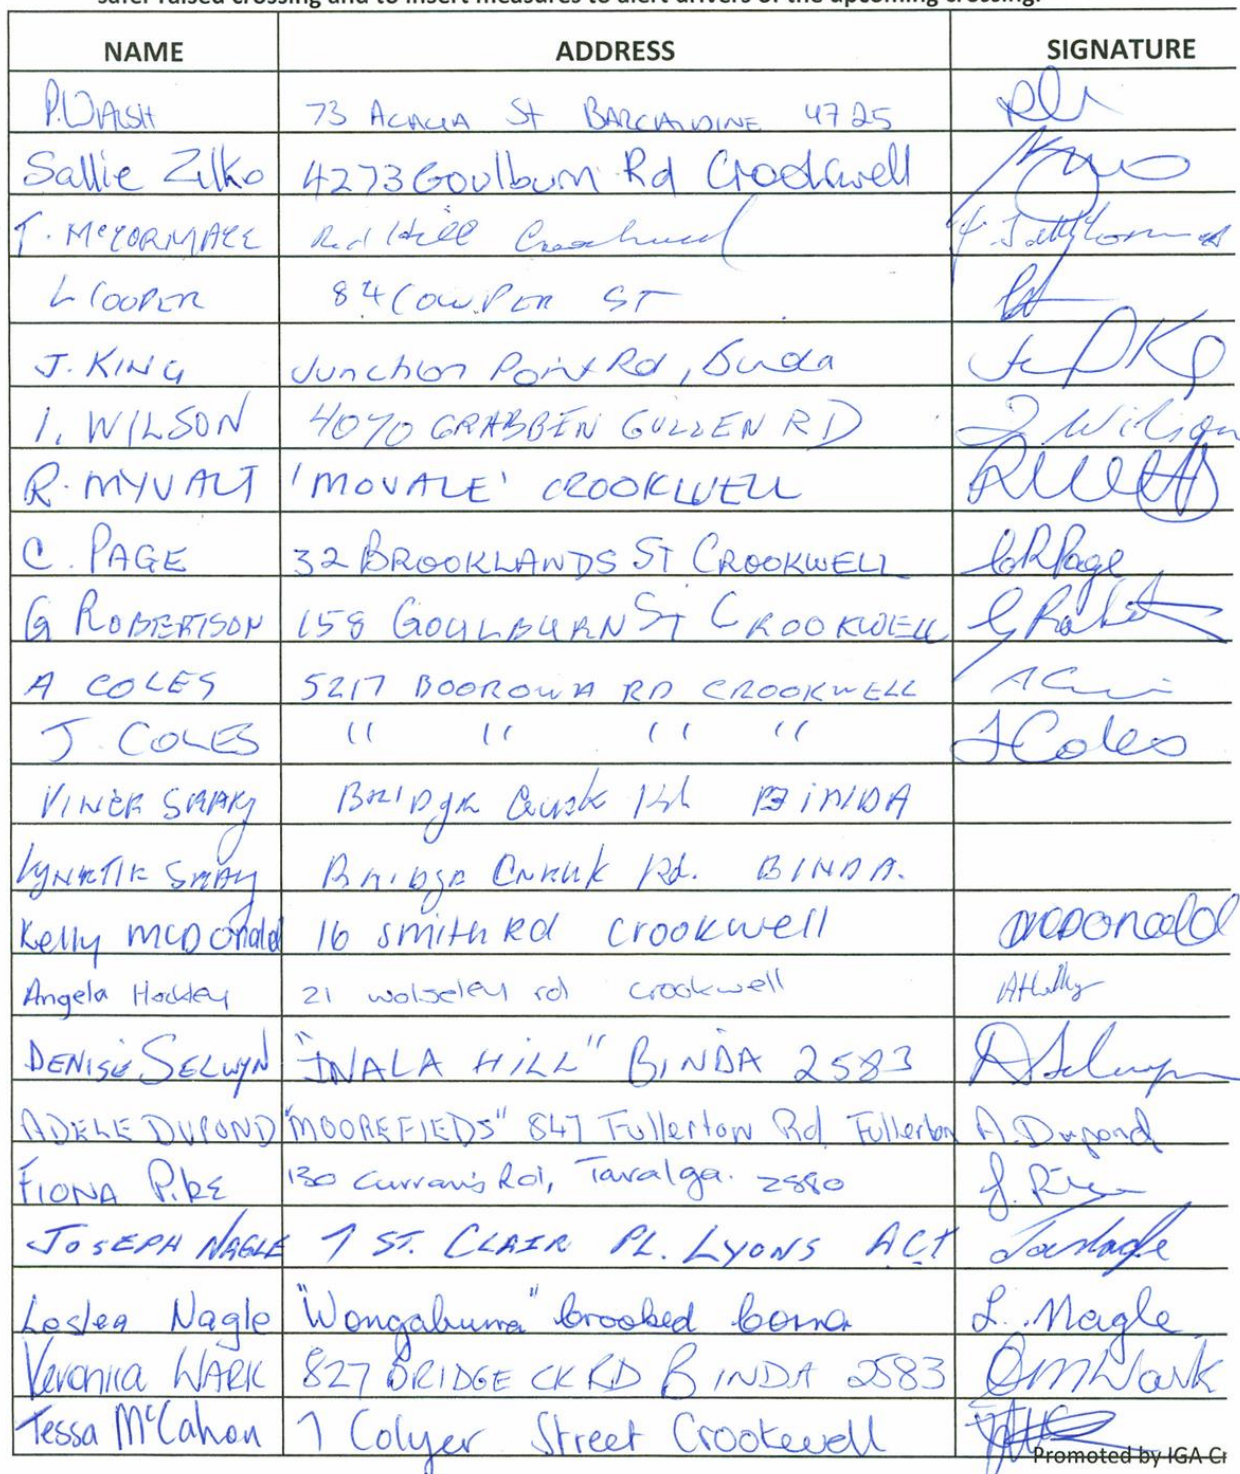 safer raised crossing and to insert measures to alert drivers of the upcoming crossing.
NAME ADDRESS SIGNATURE
P. WALSH 73 ACACIA St BARCALDINE 4725
Sallie Zilko 4273 Goulburn Rd Crookwell
T. McCORMACK Red Hill Crookwell
L COOPER 84 COWPER ST
J. KING Junction Point Rd, Binda
I. WILSON 4070 GRABBEN GULLEN RD I Wilson
R. MYVALT 'MOVALE' CROOKWELL
C. PAGE 32 BROOKLANDS ST CROOKWELL CR Page
G ROBERTSON 158 GOULBURN ST CROOKWELL
A COLES 5217 BOOROWA RD CROOKWELL
J. COLES " " " " J Coles
BRIDGE Creek Rd BINDA
BRIDGE CREEK Rd. BINDA.
Kelly McDonald 16 smith Rd crookwell McDonald
Angela Hockley 21 wolseley rd crookwell
DENISE SELWYN "INALA HILL" BINDA 2583 D Selwyn
ADELE DUPOND "MOOREFIEDS" 847 Fullerton Rd Fullerton A. Dupond
FIONA PIKE 130 Curran's Rd, Taralga. 2580
JOSEPH NAGLE 7 ST. CLAIR PL. LYONS ACT
Leslea Nagle "Wongaburra" Crooked Corna L. Nagle
Veronica WARK 827 BRIDGE CK RD BINDA 2583 Wark
Tessa McCahon 7 Colyer Street Crookwell
Promoted by IGA Cr